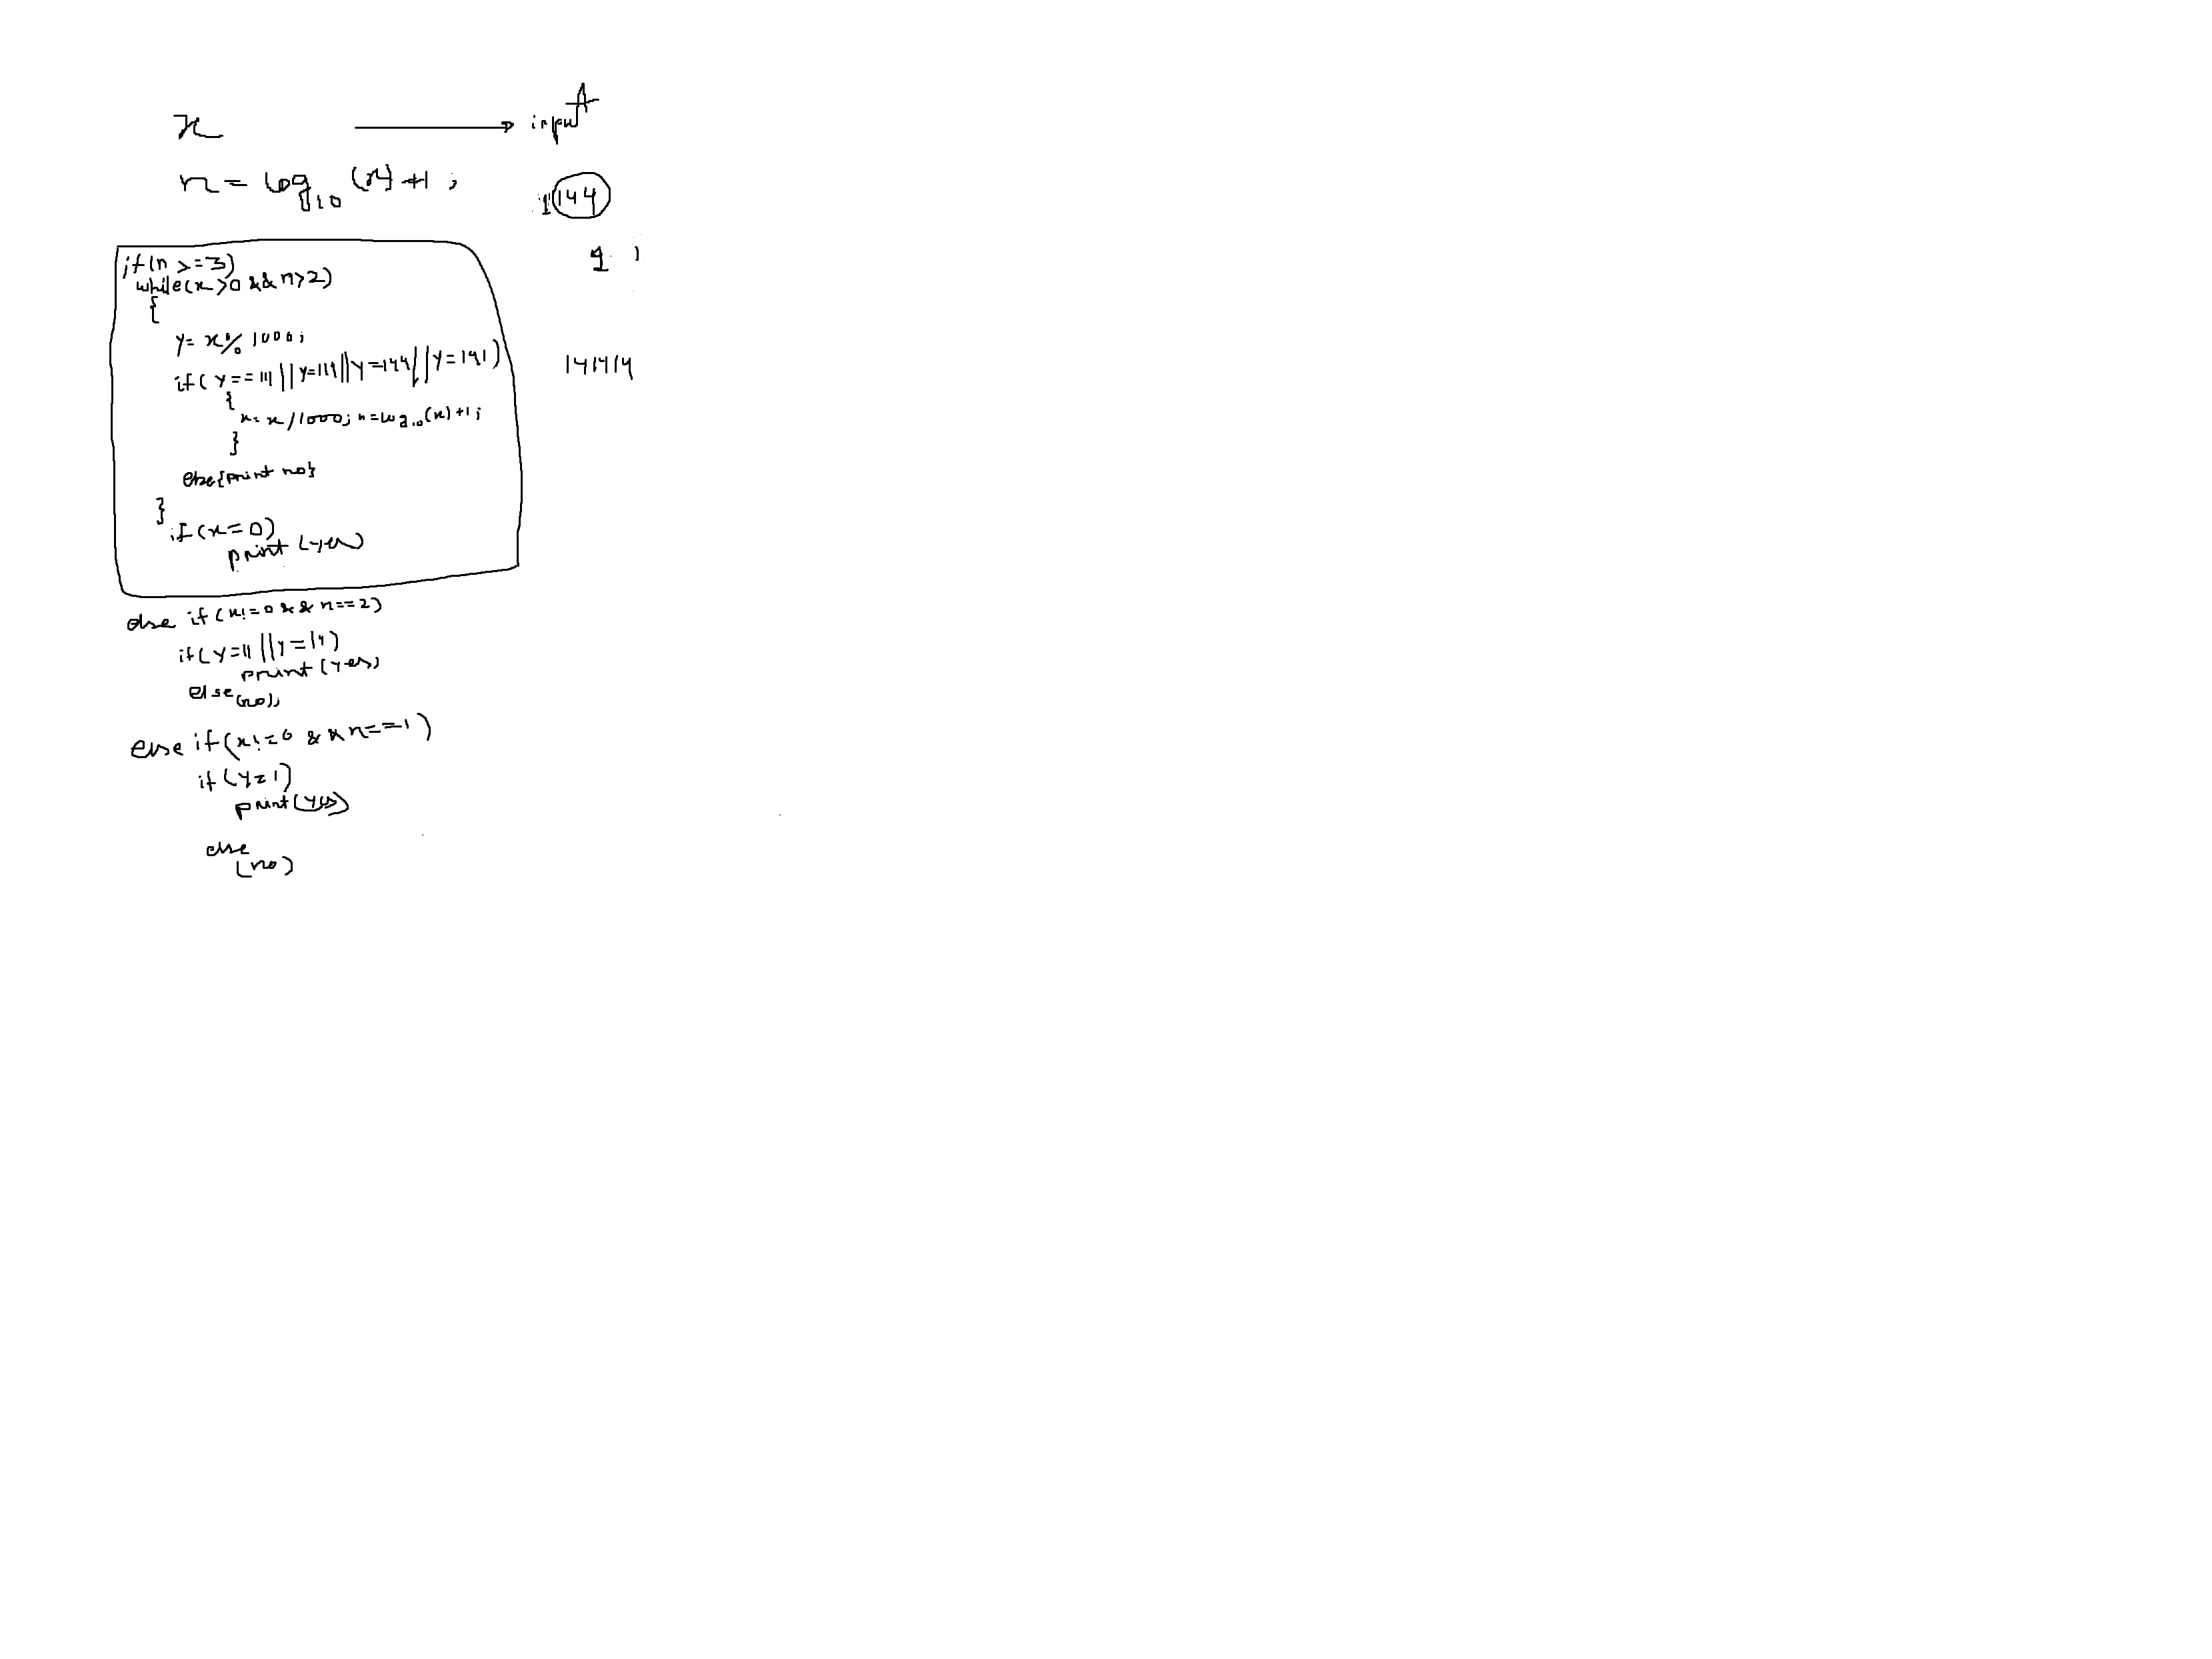 x → input
n = log10 (x) + 1 ;
1144
1 1
if(n >=3)
while(x >0 && n>2)
{
y= x% 1000;
if( y == 111 || y=111 || y=144 || y=141)
141414
{
x= x/1000; n=log10(x)+1;
}
else{print no}
}
if(x=0)
print (yes)
else if(x!=0 && n==2)
if(y=11 || y=14)
print (yes)
else(no);
else if(x!=0 && n==1)
if (y=1)
print(yes)
else
(no)